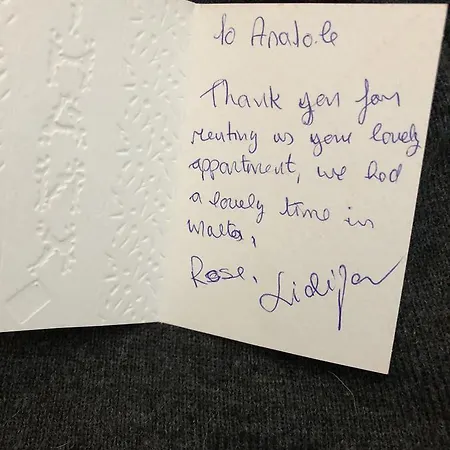 To Anatole
Thank you for
renting us your lovely
appartment, we had
a lovely time in
Malta,
Rose, Lidija